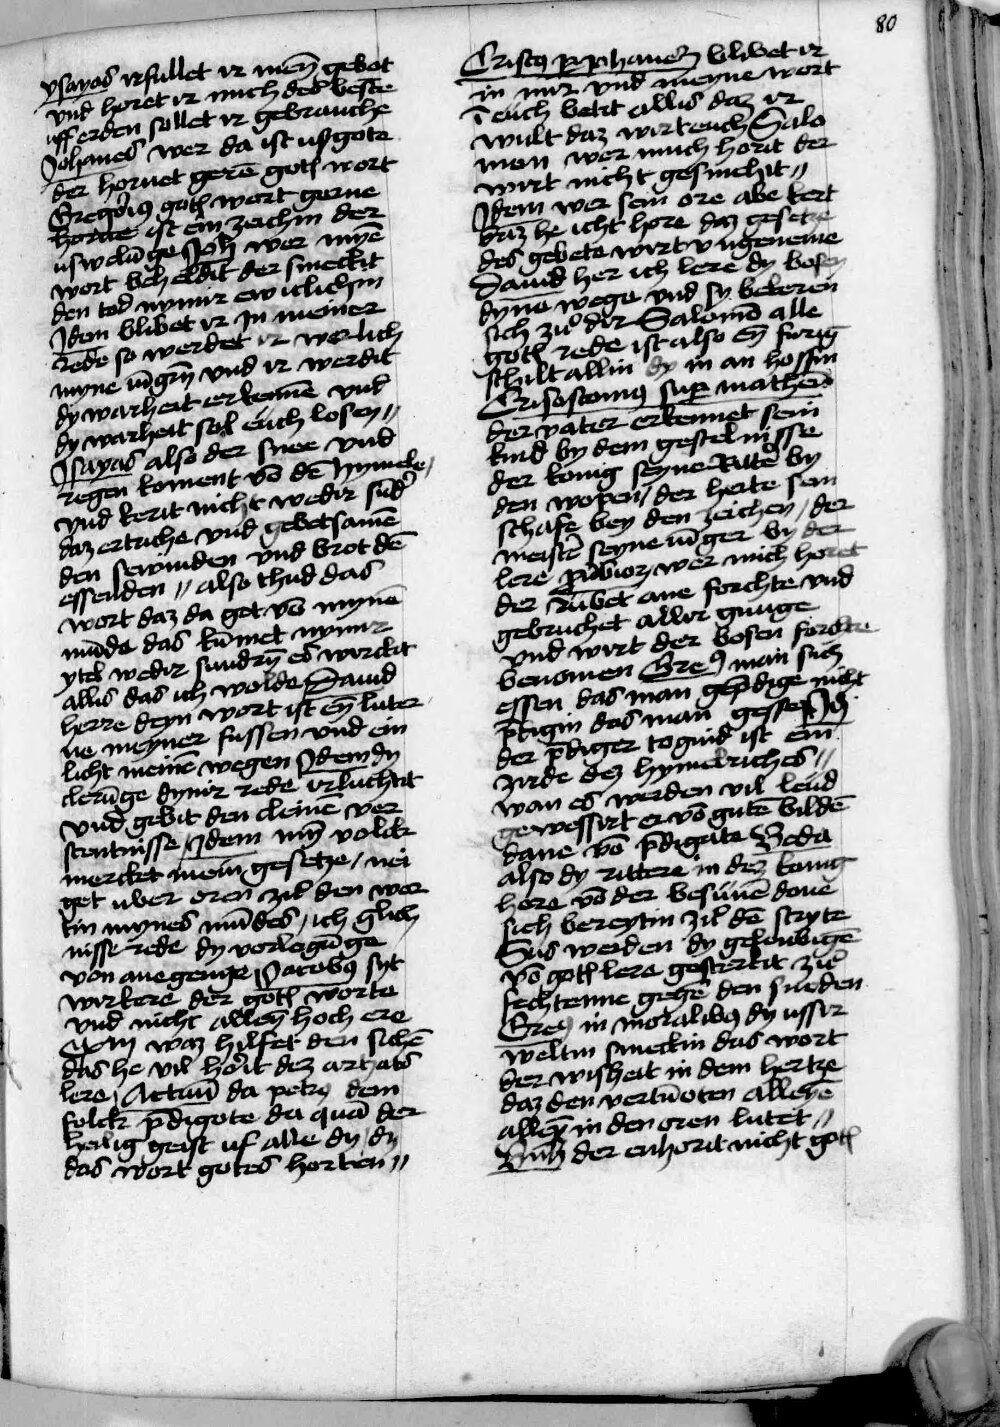 80
ysayas irfullet ir mei͂ gebot
und horet ir mich des beste
uff erden sollet ir gebruche
Johanes wer da ist uß gote
der horuet gerē gotz wort
Gregori9 gotz wort gerne
horne ist ein zeichin der
uswelūge Joh wer mynē
wort beheldit der smeckit
den tod nymir ewiclichin
Idem blibet ir In meiner
rede so werdet ir werlich
myne iūgrī und ir werdit
dy warheit erkennē und
dy warheit sol euch losen //
Jsayas also der snee und
regen koment vō dē hymele /
und kerit nicht wedir sūd'
daz ertriche und gebetsamē
den sewinden und brot dē
essenden // also thud das
wort daz da get vō mynē
mūde das kūmet nymir
ytel wedir sundrī es wirckit
allis das ich wolde David
herre deyn wort ist eȳ luter
ne meyner fussen und ein
licht meinē wegen Idem dy
clerūge dynir rede irluchtit
und gebit den cleine ver
stentnisse / Idem mȳ volck
mercket mein gesetze / nei
get uwer oren zu den wor
tin mynes mūdes / ich glich
nisse rede dy vorlegūge
von anegenge Jacob9 syt
wirkere der gotz worte
und nicht alleȳ hore
waz hilfet den sichē
das he vil horit dez artzats
lere Actuū da petr9 dem
folck p̄digote da quā der
heilig geist uf alle dy / dy
das wort gotes horten //
Crist9 blibet ir
in mir und meyne wort
ī euch betit allis daz ir
wult daz wirt euch Salo
mon wer mich horit der
wirt nicht geschehit //
Idem wer sein ore abe kert
daz he icht hore daz gesetze
des gebete wirt ungeneme
David her ich lere dy bosen
dyne wege und sy bekeren
sich zu dir Salomō alle
gotz rede ist also eȳ furig
schilt allin dy in an hoffin
Crisostom9 sup matheū
der vater erkennet sein
kind by dem gestelnisse
der konig seyne Ritter by
den wopen / der herte sein
schafe bey den zeichen / der
meister seyne iūger by der
lere wer mich horet
der rūwet ane forchte und
gebruchet allir gnuge
und wirt der bosen forchte
benomen Gre9 man sich
essen das man gep̄dige nicht
p̄digin das man gesse Jō
der p̄diger togind ist ein
zirde dez hymelriches //
wan es werden vil leud
gewessirt vō gutē bildē
dane vō p̄digate Beda
also dy rittere in dez konig
hore vō der besunē done
sich bereytin zu dē stryte
Sus werden dy gelowbigē
vō gotz lere gesterkit zu
fechtenne gehē den sunden
Gre9 in moralib9 dy ussir
weltin smeckin das wort
der wisheit in dem hertze
daz den vertūoten alleyē
alleyn in den oren lutet //
der enhorit nicht gotz